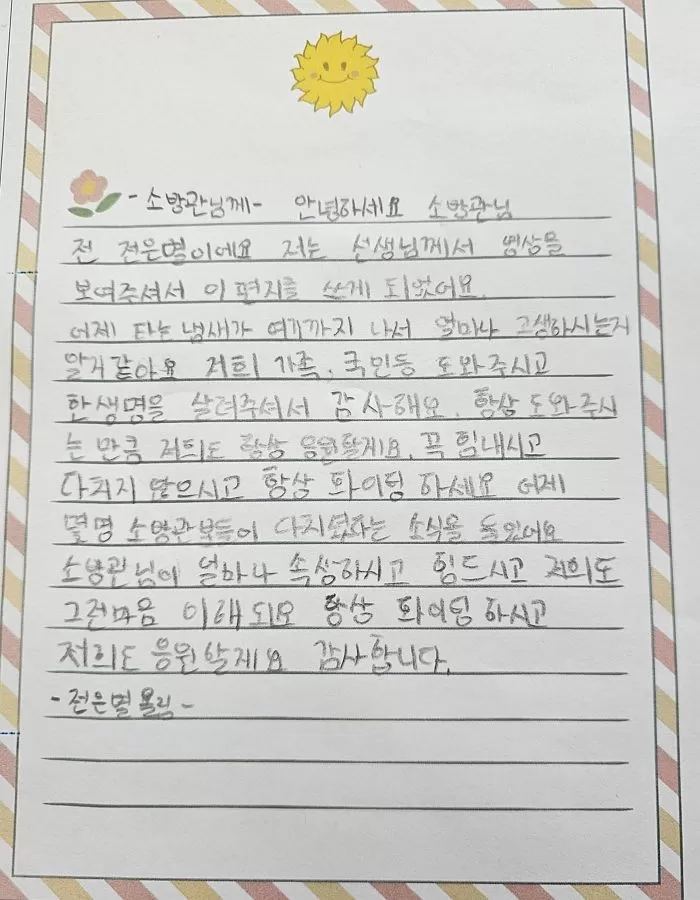 -소방관님께- 안녕하세요 소방관님
전 전은별이에요 저는 선생님께서 영상을
보여주셔서 이 편지를 쓰게 되었어요.
어제 타는 냄새가 여기까지 나서 얼마나 고생하시는지
알거 같아요 저희 가족, 국민등 도와주시고
한 생명을 살려주셔서 감사해요. 항상 도와주시
는 만큼 저희도 항상 응원할게요. 꼭 힘내시고
다치지 않으시고 항상 화이팅 하세요 어제
몇명 소방관분들이 다치셨다는 소식을 들었어요
소방관님이 얼마나 속상하시고 힘드시고 저희도
그런마음 이해되요 항상 화이팅 하시고
저희도 응원할게요 감사합니다.
-전은별 올림-